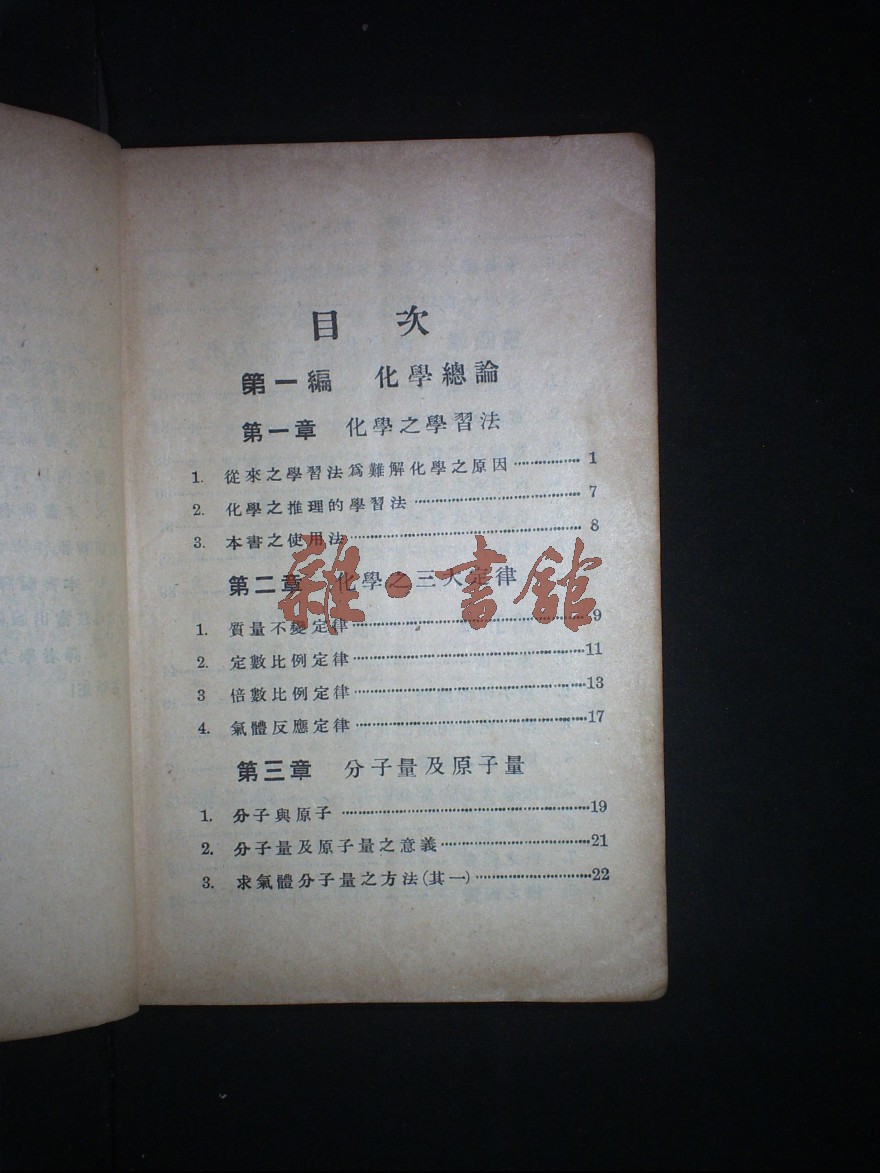 目 次
第一編 化學總論
第一章 化學之學習法
1. 從來之學習法爲難解化學之原因 1
2. 化學之推理的學習法 7
3. 本書之使用法 8
第二章 化學之三大定律
1. 質量不變定律 9
2. 定數比例定律 11
3 倍數比例定律 13
4. 氣體反應定律 17
第三章 分子量及原子量
1. 分子與原子 19
2. 分子量及原子量之意義 21
3. 求氣體分子量之方法(其一) 22
雜·書館